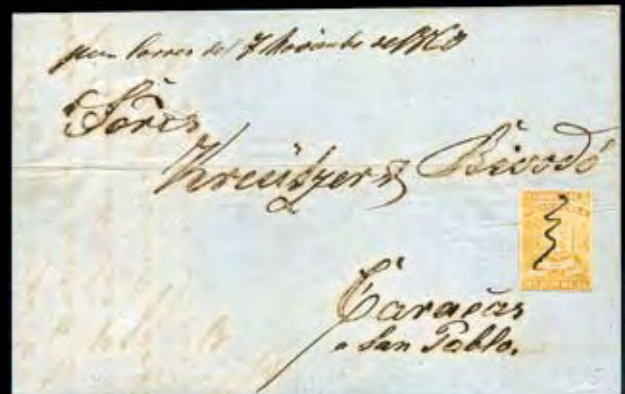 por Correo del 7 Noviembe de 1860
Sõres
Kreützer & Bevodó
Caracas
a San Pablo.